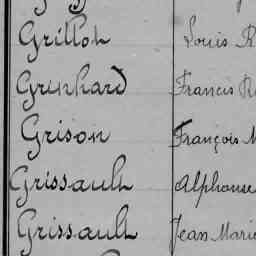 Grillot Louis R
Grinhard Francis R
Grison François M
Grissault Alphonse
Grissault Jean Marie